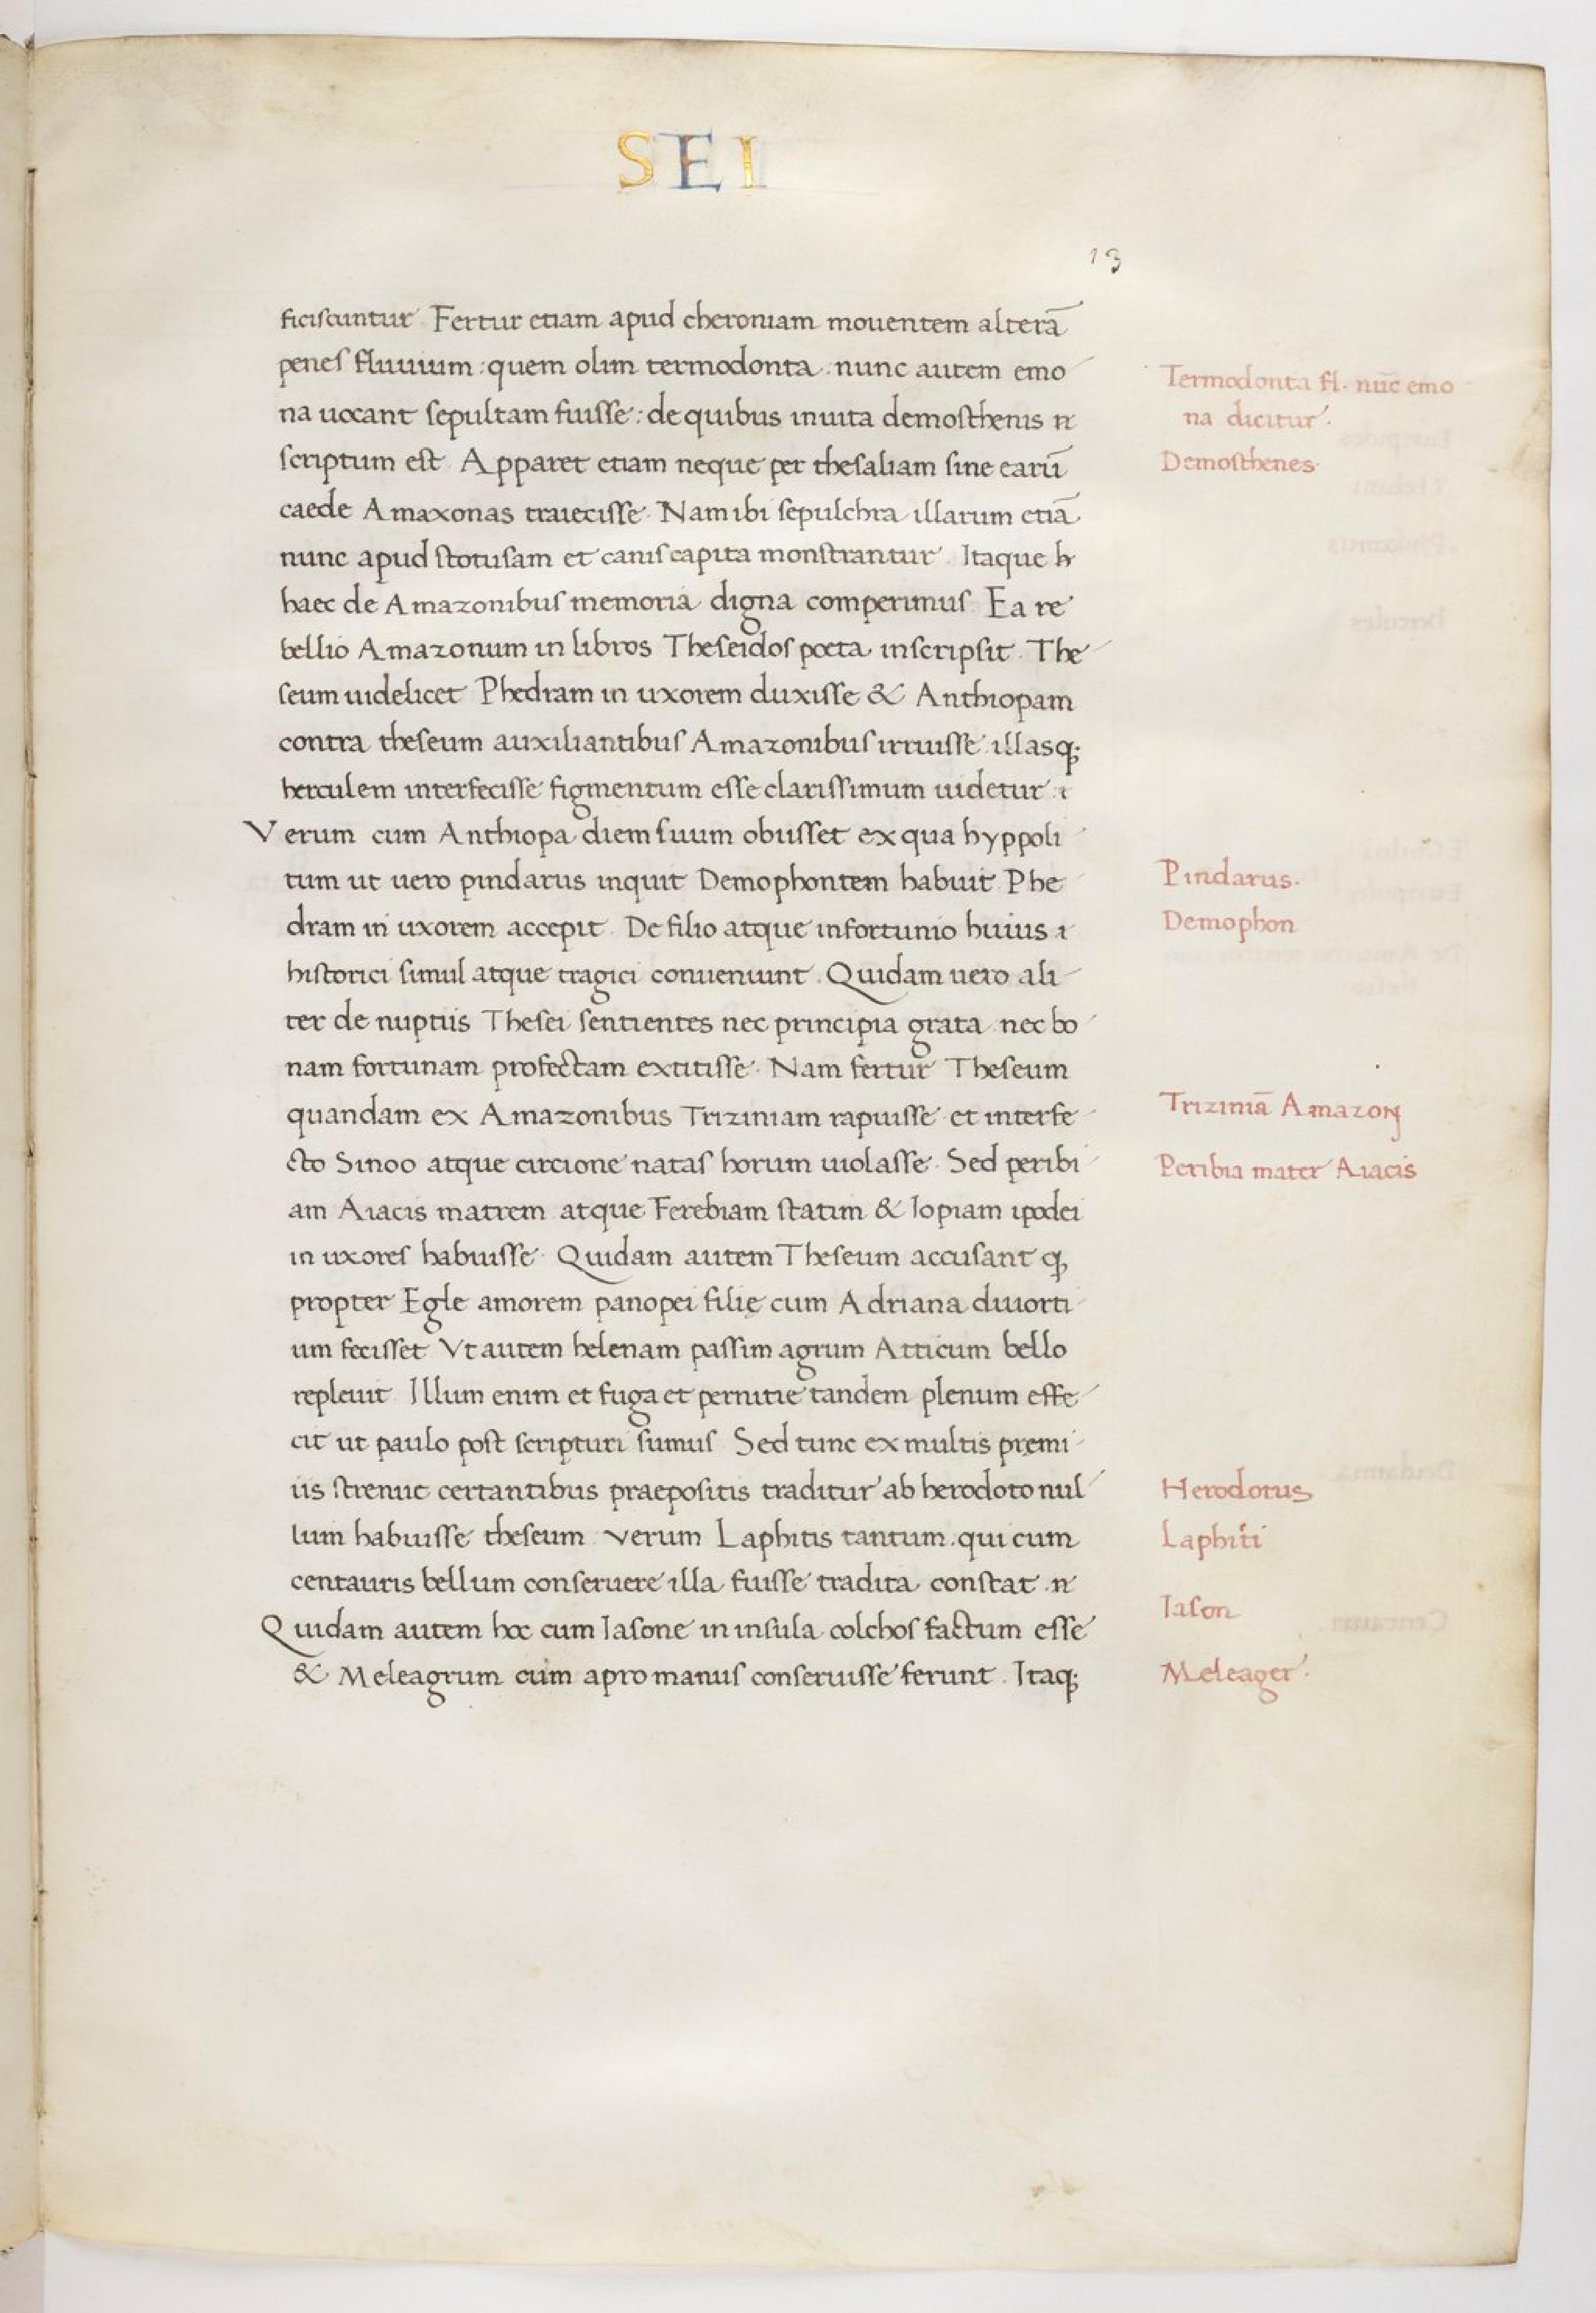 SEI
13
ficiscuntur Fertur etiam apud cheroniam mouentem alterā
penes fluuium: quem olim termodonta. nunc autem emo
na uocant sepultam fuisse: de quibus in uita demosthenis n
scriptum est. Apparet etiam neque per thesaliam sine earū
caede Amaxonas traiecisse. Nam ibi sepulchra illarum etiā
nunc apud stotusam et canis capita monstrantur. Itaque h
haec de Amazonibus memoria digna comperimus. Ea re
bellio Amazonum in libros Theseidos poeta inscripsit. The
seum uidelicet Phedram in uxorem duxisse & Anthiopam
contra theseum auxiliantibus Amazonibus irruisse illasq;
herculem interfecisse figmentum esse clarissimum uidetur: i
Verum cum Anthiopa diem suum obiisset ex qua hyppoli
tum ut uero pindarus inquit Demophontem habuit Phe
dram in uxorem accepit. De filio atque infortunio huius i
historici simul atque tragici conueniunt. Quidam uero ali
ter de nuptiis Thesei sentientes nec principia grata nec bo
nam fortunam profectam extitisse. Nam fertur Theseum
quandam ex Amazonibus Triziniam rapuisse et interfe
cto Sinoo atque circione natas horum uiolasse. Sed peribi
am Aiacis matrem atque Ferebiam statim & Iopiam ipodei
in uxores habuisse. Quidam autem Theseum accusant ꝙ
propter Egle amorem panopei filię cum Adriana diuorti
um fecisset Vt autem helenam passim agrum Atticum bello
repleuit. Illum enim et fuga et pernitie tandem plenum effe
cit ut paulo post scripturi sumus Sed tunc ex multis pręmi
iis strenue certantibus praepositis traditur ab herodoto nul
lum habuisse theseum. verum Laphitis tantum. qui cum
centauris bellum conseruere illa fuisse tradita constat. n
Quidam autem hoc cum Iasone in insula colchos factum esse
& Meleagrum cum apro manus conseruisse ferunt. Itaq;
Termodonta fl. nūc emo
na dicitur.
Demosthenes.
Pindarus.
Demophon
Triziniā Amazoꝝ
Peribia mater Aiacis
Herodotus
Laphiti
Iason
Meleager.